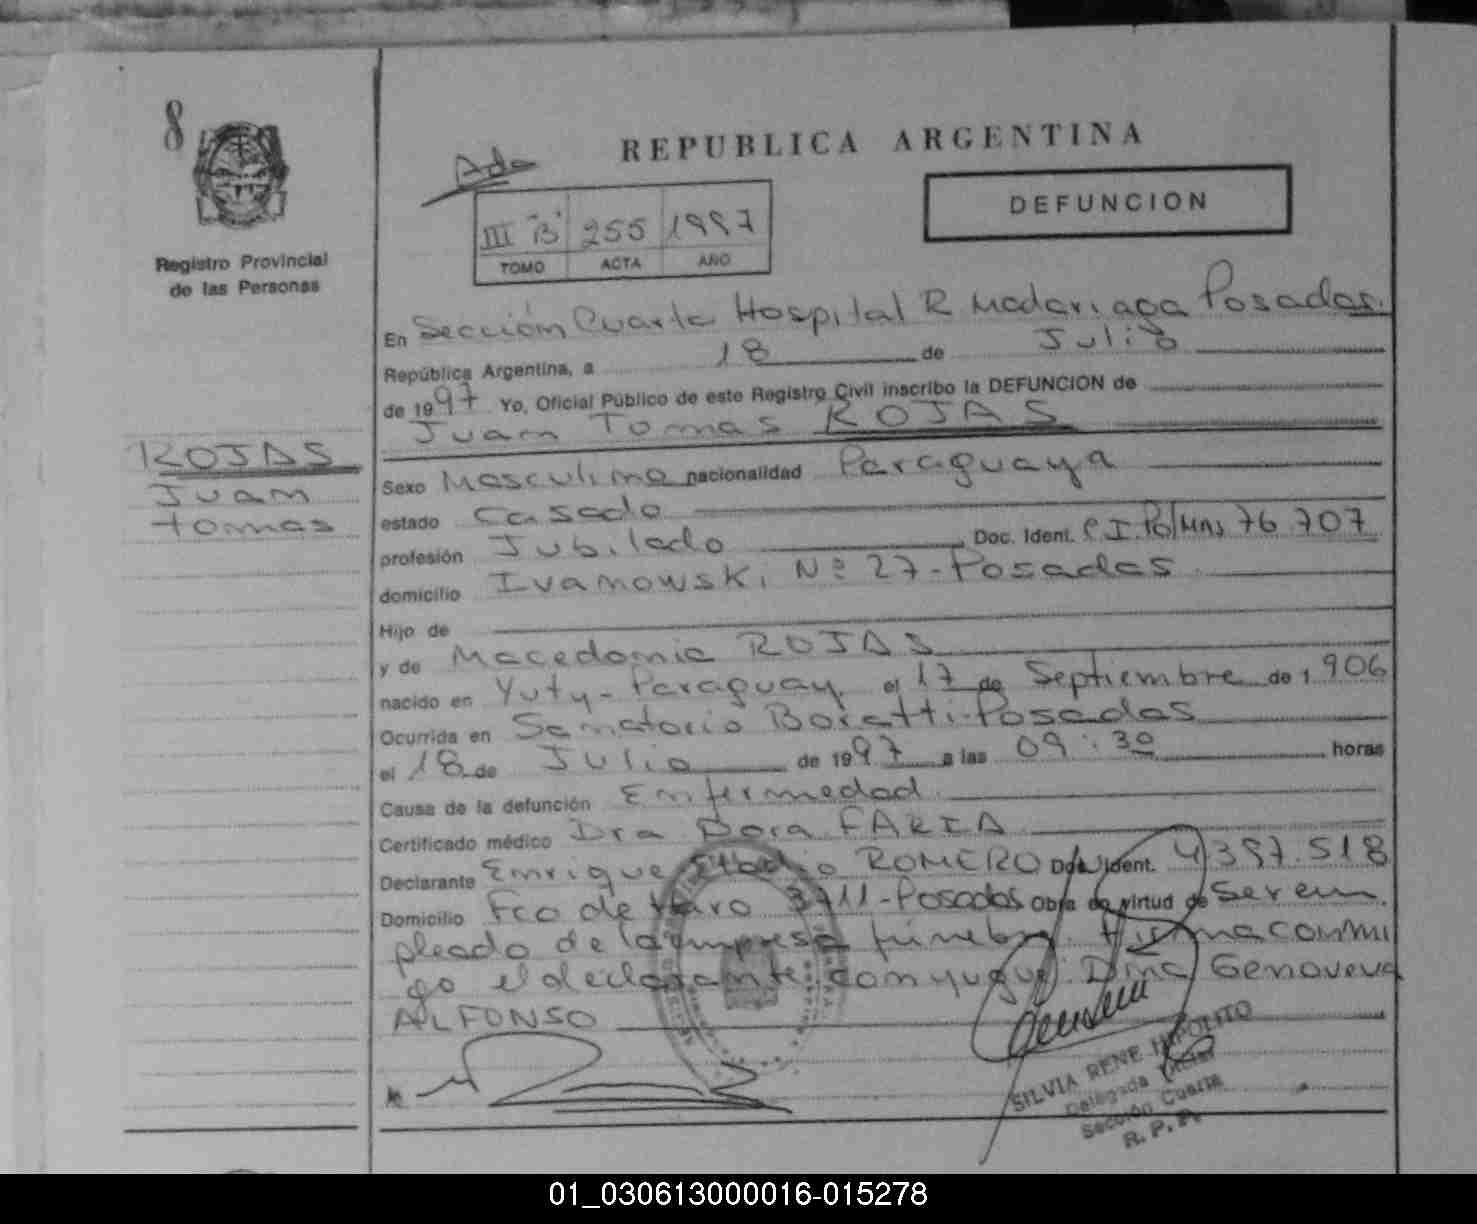 8
REPUBLICA ARGENTINA
Ada
DEFUNCION
III "B" 255 1997
TOMO ACTA AÑO
Registro Provincial
de las Personas
En Sección Cuarta Hospital R Madariaga Posadas.
República Argentina, a 18 de Julio
de 1997 Yo, Oficial Público de este Registro Civil inscribo la DEFUNCION de
Juan Tomas ROJAS
ROJAS
Juan
Tomas
Sexo Masculino nacionalidad Paraguaya
estado Casado
profesión Jubilado Doc. Ident. C.I.Pol Mns 76 707
domicilio Ivanowski Nº 27-Posadas
Hijo de
y de Macedonia ROJAS
nacido en Yuty-Paraguay. el 17 de Septiembre de 1.906
Ocurrida en Sanatorio Boratti-Posadas
el 18 de Julio de 1997 a las 09:30 horas
Causa de la defunción Enfermedad
Certificado médico Dra Dora FARIA
Declarante Enrique ROMERO Doc. Ident. 4397.518
Domicilio Fco de Haro 3711-Posadas Obra en virtud de Ser em
pleado de la empresa fúnebre. Firma conmi
go el declarante conyugue: Dina Genoveva
ALFONSO
SILVIA RENE HIPOLITO
Delegada Titular
Sección Cuarta
R. P. P.
01_030613000016-015278